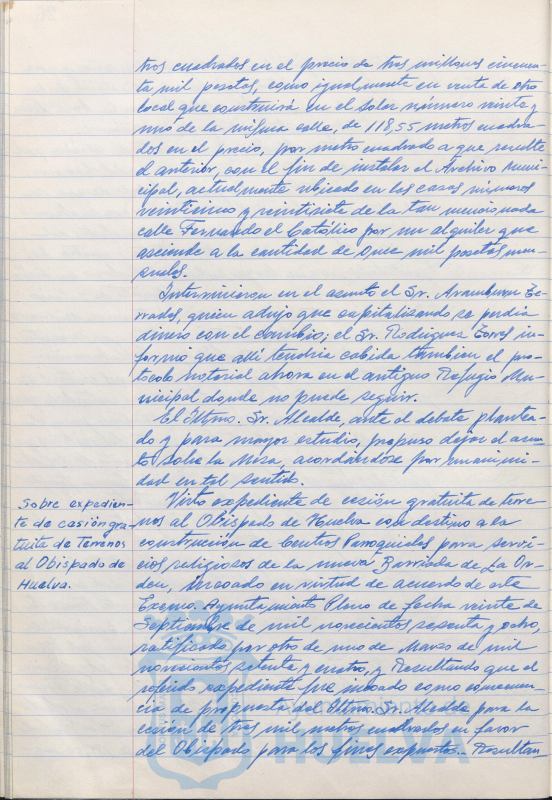 tros cuadrados en el precio de tres millones cincuen-
ta mil pesetas, como igualmente en venta de otro
local que construirá en el solar número veinte y
uno de la misma calle, de 118,55 metros cuadra-
dos en el precio, por metro cuadrado a que resulte
el anterior, con el fin de instalar el Archivo Muni-
cipal, actualmente ubicado en las casas números
veinticinco y veintisiete de la tan mencionada
calle Fernando el Católico por un alquiler que
asciende a la cantidad de once mil pesetas men-
suales.
Intervinieron en el asunto el Sr. Aramburu
quien adujo que capitalizando se perdía
dinero con el cambio; el Sr. Rodriguez Torres in-
formó que allí tendría cabida tambien el pro-
tocolo notarial ahora en el antiguo Refugio Mu-
nicipal donde no puede seguir.
El Iltmo. Sr. Alcalde, ante el debate plantea-
do y para mayor estudio, propuso dejar el asun-
to sobre la Mesa, acordándose por unanimi-
dad en tal sentido.
Sobre expedien-
te de cesión gra-
tuita de Terrenos
al Obispado de
Huelva.
Visto expediente de cesión gratuita de terre-
nos al Obispado de Huelva con destino a la
construcción de Centros Parroquiales para servi-
cios religiosos de la nueva Barriada de La Or-
den, incoado en virtud de acuerdo de este
Excmo. Ayuntamiento Pleno de fecha veinte de
Septiembre de mil novecientos sesenta y ocho,
ratificado por otro de uno de Marzo de mil
novecientos setenta y cuatro, y Resultando que el
referido expediente fue incoado como consecuen-
cia de propuesta del Iltmo. Sr. Alcalde para la
cesión de tres mil metros cuadrados en favor
del Obispado para los fines expuestos.- Resultan-
HUELVA